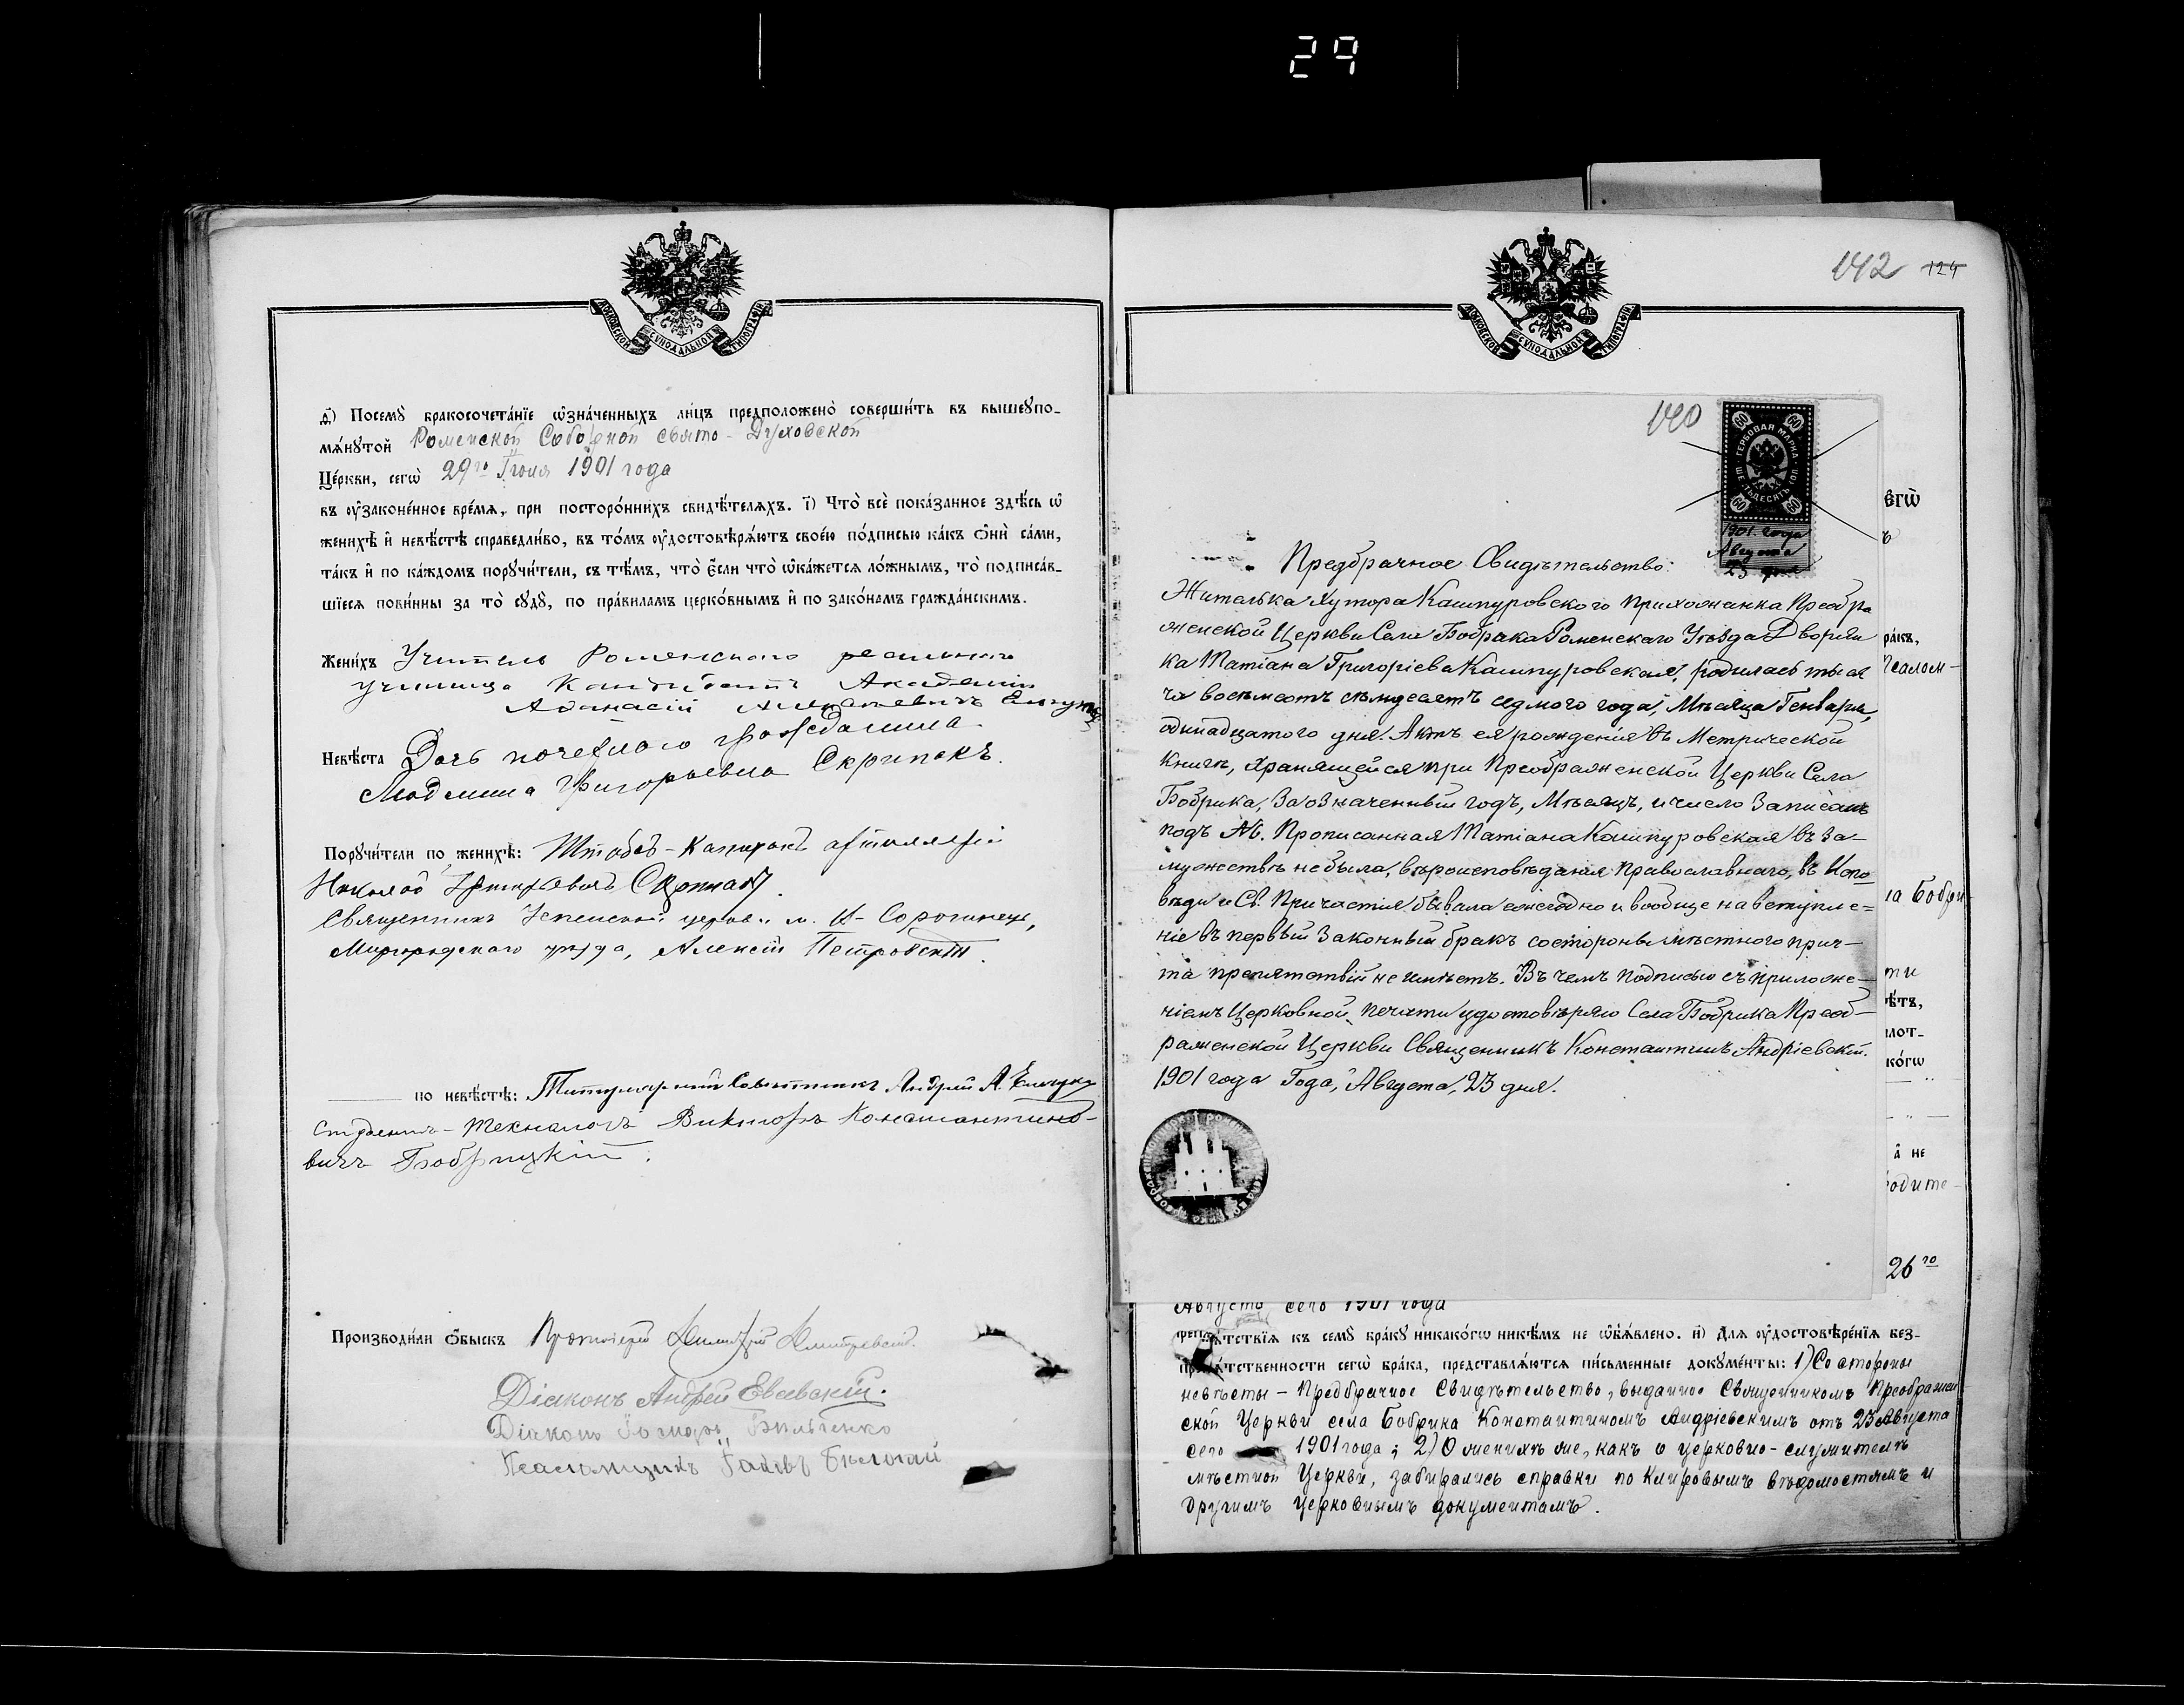 29
МОСКОВСКОЙ СѴНОДАЛЬНОЙ ТИПОГРАФІИ
д҃) Посемꙋ̀ бракосочета́нїе ѡ҆зна́ченныхъ ли́цъ предположено̀ соверши́ть въ вышеꙋпо-
мѧ́нꙋтой Роменской Соборной свято-Духовской
Це́ркви, сегѡ̀ 29го Іюля 1901 года
въ ᲂу҆законе́нное вре́мѧ, при посторо́ннихъ свидѣ́телѧхъ. і҃) Что̀ всѐ пока́занное здѣ́сь ѡ҆
женихѣ̀ и҆ невѣ́стѣ справедли́во, въ то́мъ ᲂу҆достовѣрѧ́ютъ свое́ю по́дписью ка́къ ѻ҆нѝ са́ми,
та́къ и҆ по ка́ждомъ порꙋчи́тели, съ тѣ́мъ, что̀ є҆́сли что̀ ѡ҆ка́жетсѧ ло́жнымъ, то̀ подписа́в-
шїесѧ пови́нны за то̀ сꙋдꙋ̀, по пра́виламъ церко́внымъ и҆ по зако́намъ гражда́нскимъ.
Жени́хъ Учитель Роменского реального
училища Кандидатъ Академіи
Афанасій
Невѣ́ста Дочь почетного гражданина
Людмила Григорьевна Скрипокъ.
Порꙋчи́тели по женихѣ̀: Штабсъ-Капитанъ артиллеріи
Николай Григорьевичъ
Священникъ Успенской церкви м. Сорочинецъ,
Миргородского уезда, Алексій Петровскій.
по невѣ́стѣ: Титулярный Совѣтникъ Андрей А.
Студентъ-технологъ Викторъ Константино-
вичъ Бобрицкій.
Производи́ли ѻ҆́быскъ Протоіерей
Діаконъ Андрей Евсевскій.
Діаконъ
Псаломщикъ
142 124
МОСКОВСКОЙ СѴНОДАЛЬНОЙ ТИПОГРАФІИ
140
60 60
ГЕРБОВАЯ МАРКА
ШЕСТЬДЕСЯТЪ КОП
60 60
1901 года
Августа
23 дня
Предбрачное Свидѣтельство.
Жителька Хутора Кашпуровского прихожанка Преобра
женской Церкви Села Бобрика Роменскаго Уѣзда Дворян
ка Татіана Григоріева Кашпуровская, родилась тыся
ча восѣмсотъ сѣмдесятъ седмого года, Мѣсяца Генваря,
одинадцатого дня. Актъ ея рожденія въ Метрической
Книгѣ, хранящейся при Преображенской Церкви Села
Бобрика, За означенный годъ, Мѣсяцъ, и число Записанъ
подъ №. Прописанная Татіана Кашпуровская въ За-
мужествѣ не была, вѣроисповѣданія Православнаго, въ Испо
вѣди и Св. Причастія бывала ежегодно и вообще на вступле=
ніе въ первый Законный бракъ состороны мѣстного прич-
та препятствій не имѣетъ. Въ чемъ подписью съ приложе-
ніемъ Церковной печати удостовѣряю Села Бобрика Преоб-
раженской Церкви Священникъ Константинъ Андріевскій.
1901 года Года, Августа, 23 дня.
вгѡ̀
ъ
ра́къ,
Псалом-
на Бобри
ти
ѣ́тъ,
кѡ́гѡ
а҆ не
родите-
26го
Августа сего 1901 года
препѧ́тствїѧ къ семꙋ̀ бра́кꙋ никако́гѡ никѣ́мъ не ѡ҆б̾ѧ́влено. и҃) Длѧ ᲂу҆достовѣре́нїѧ без-
препѧ́тственности сегѡ̀ бра́ка, представлѧ́ютсѧ пи́сьменные докꙋме́нты: 1) Со стороны
невѣсты - Предбрачное Свидѣтельство, выданное Священникомъ Преображен
ской Церкви села Бобрика Константиномъ Андріевскимъ отъ 23 Августа
сего 1901 года; 2) О женихѣ же, какъ о церковно-служителѣ
мѣстной Церкви, забирались справки по Клировымъ вѣдомостямъ и
другимъ церковнымъ документамъ.